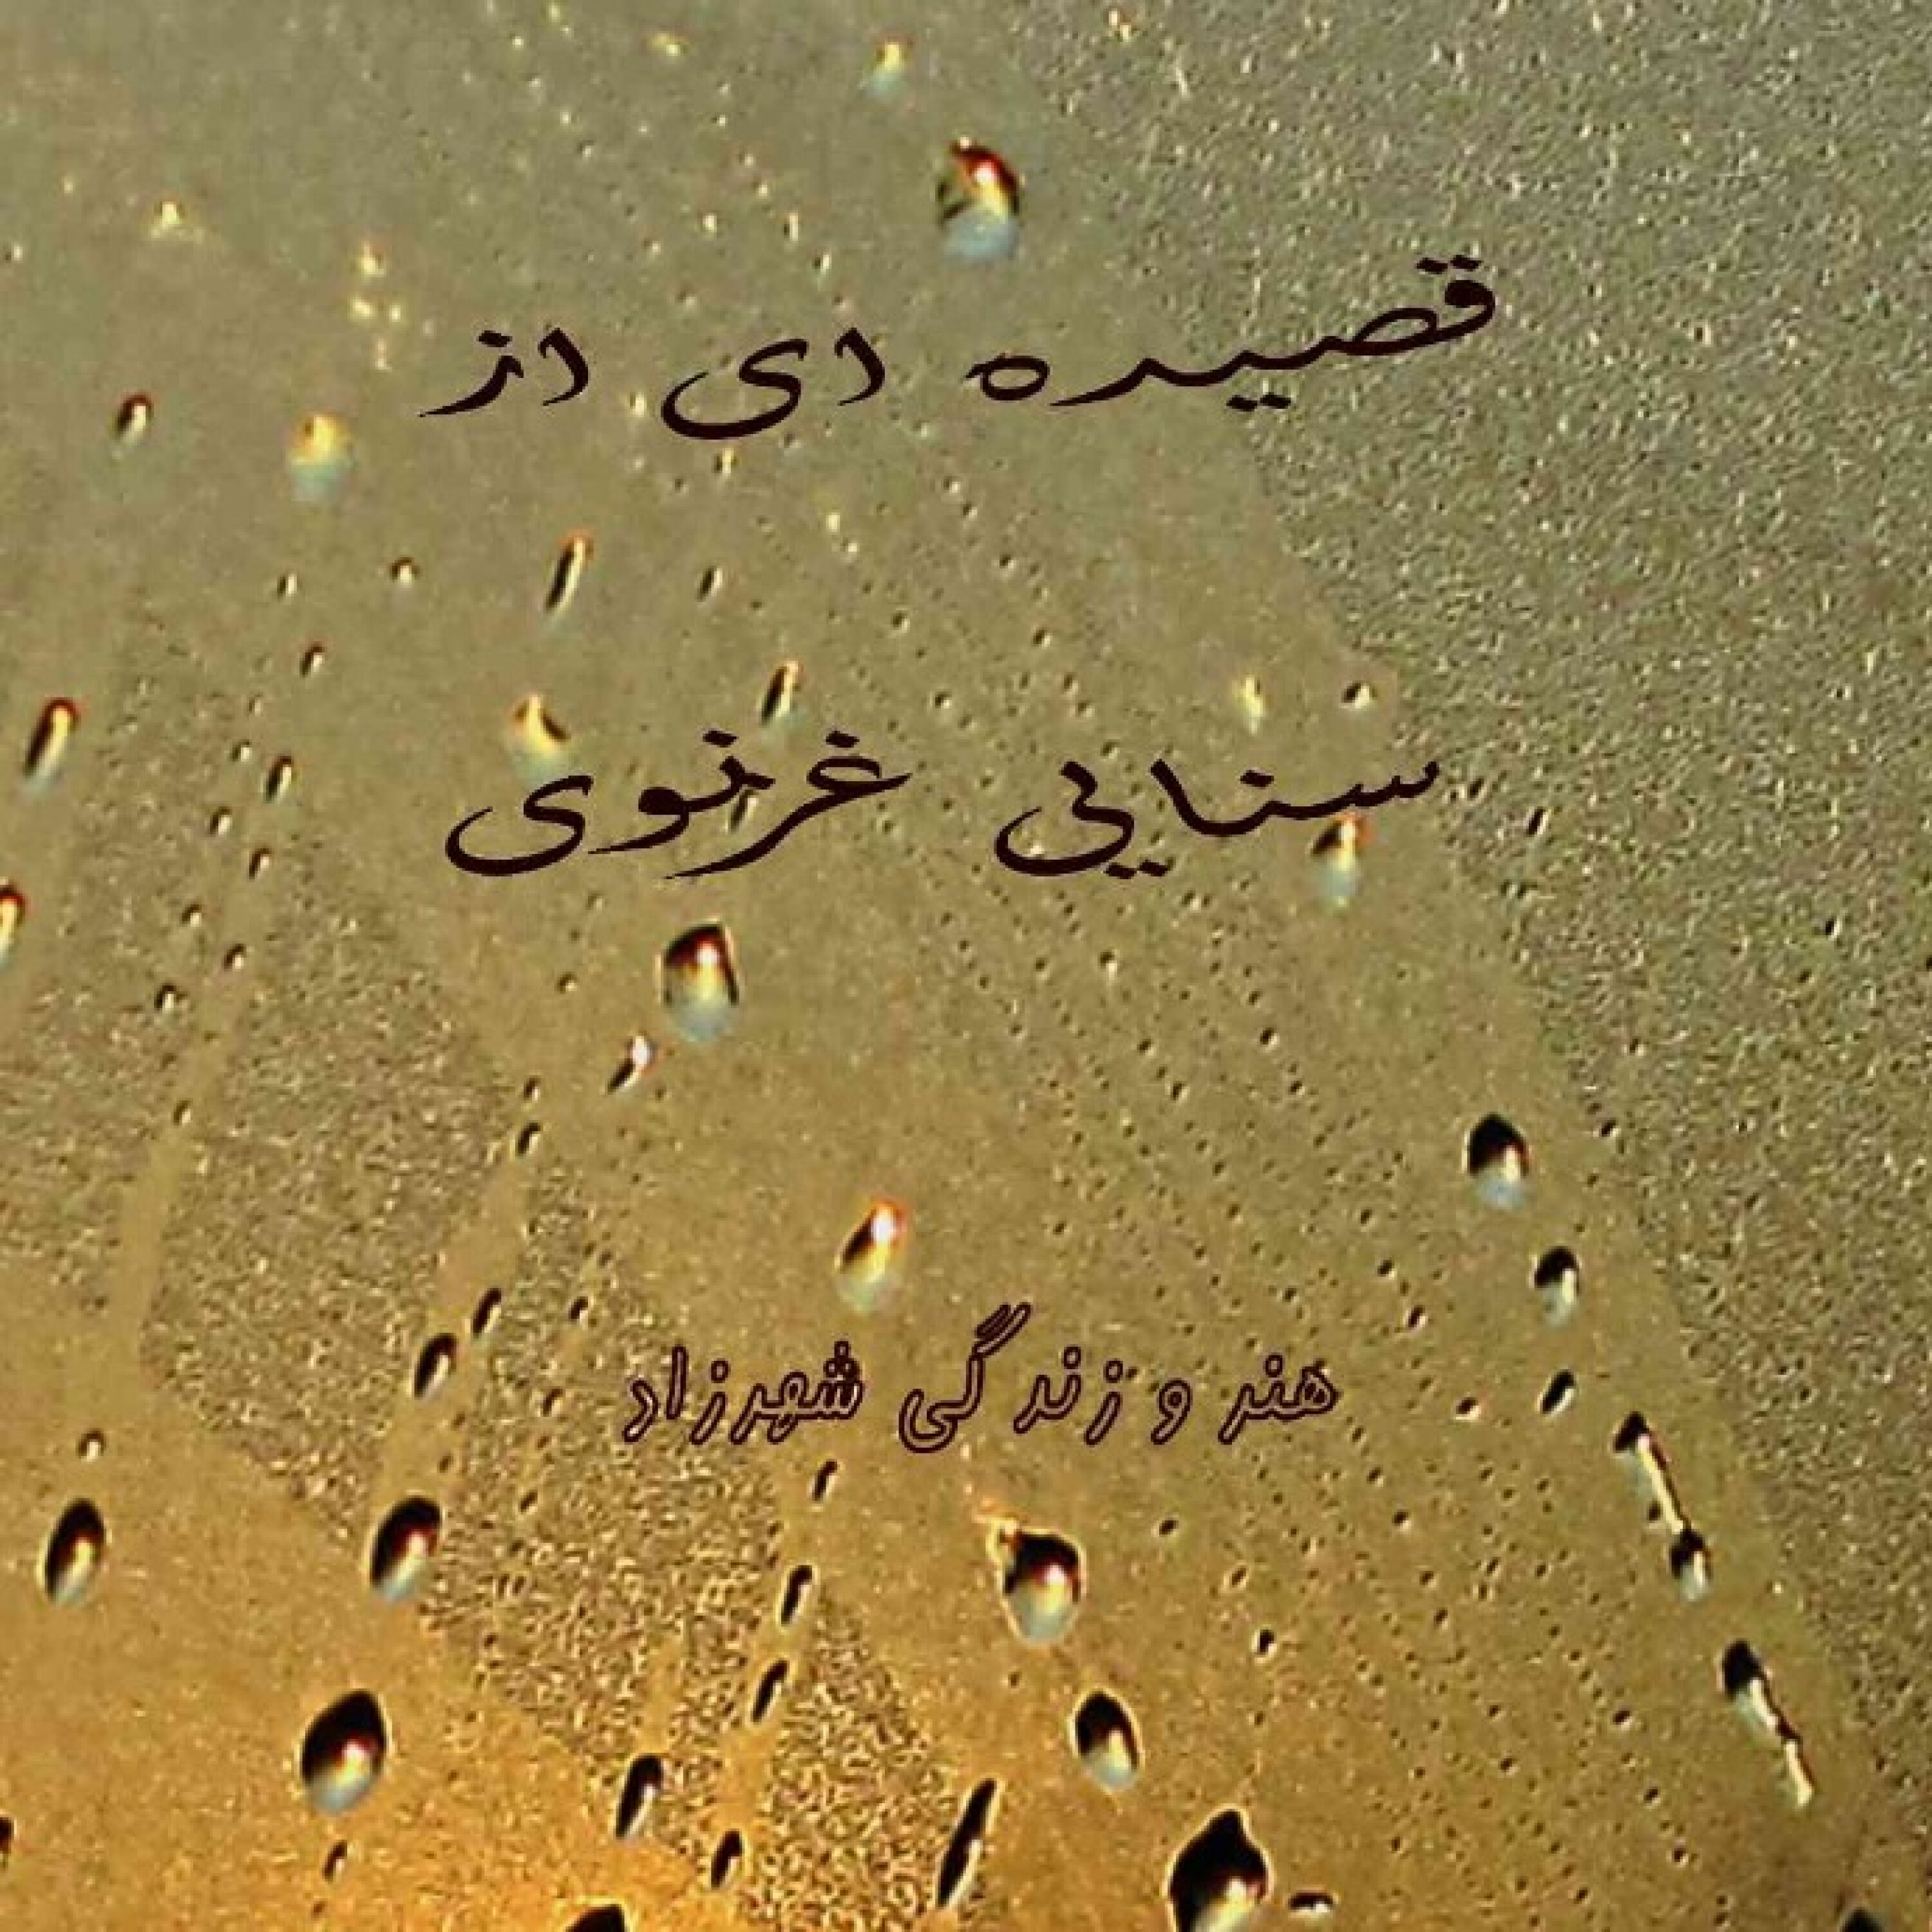 قصیده ای از
سنایی غزنوی
هنر و زندگی شهرزاد